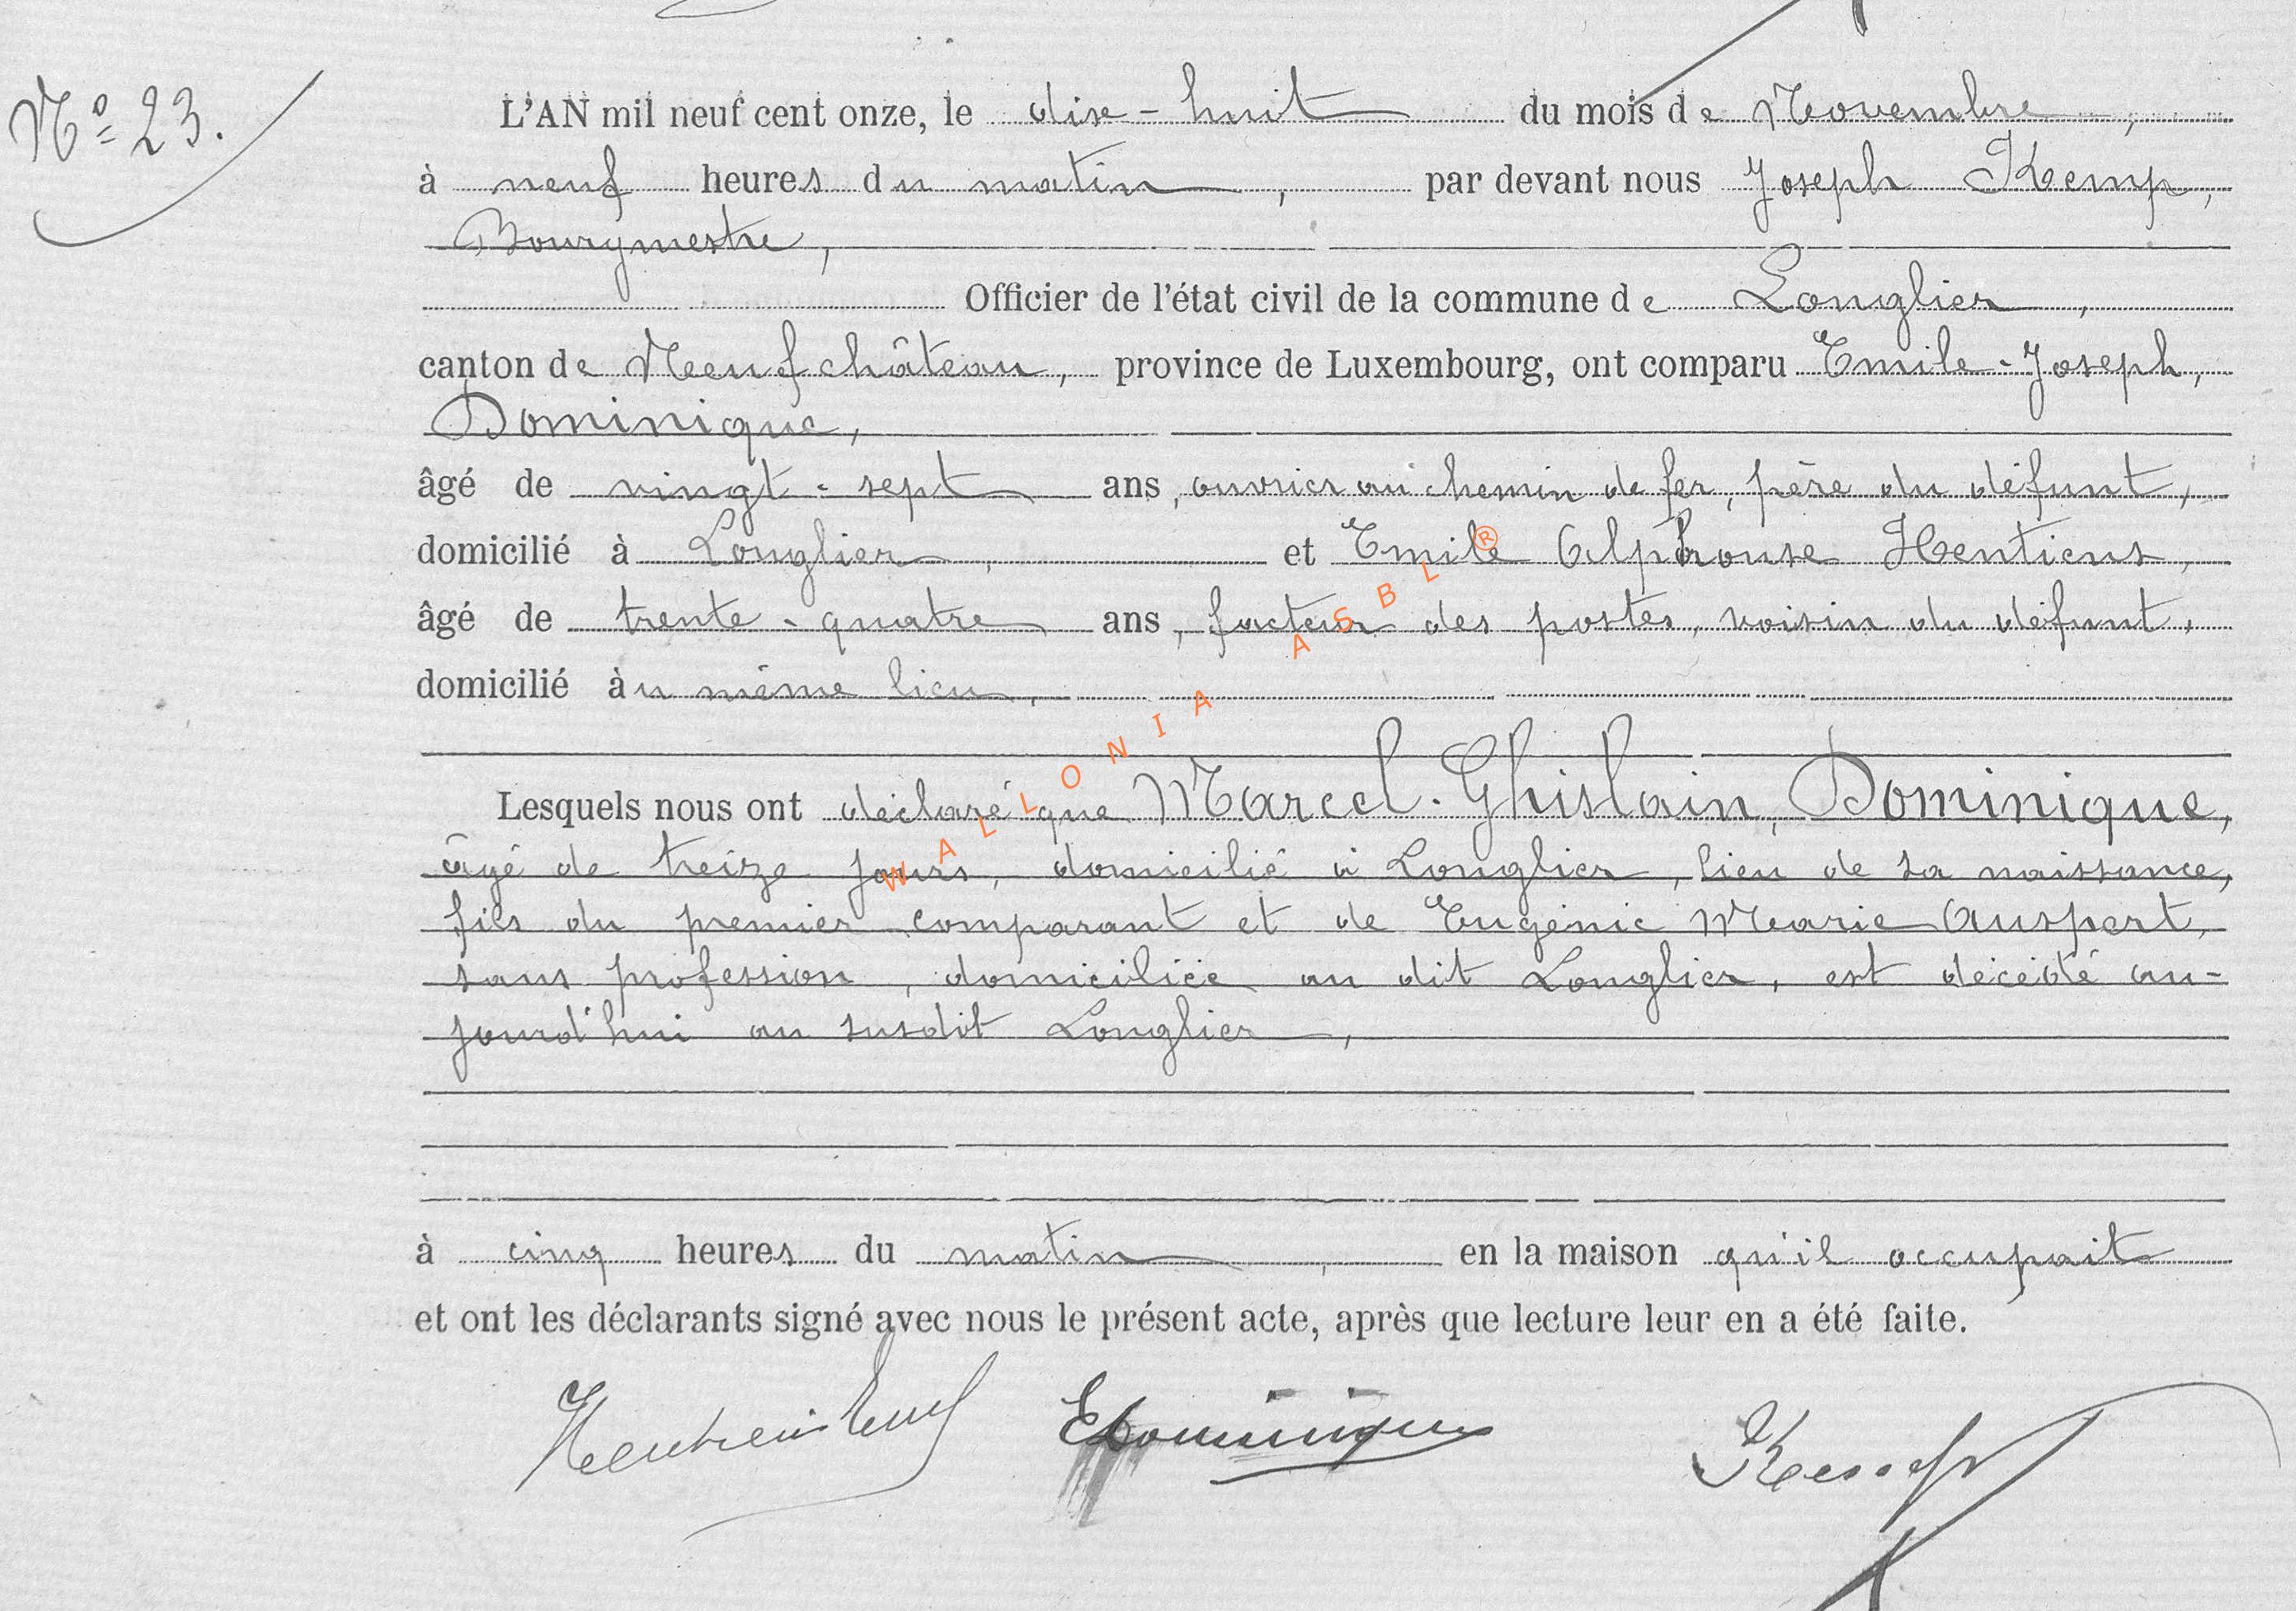 Nº 23.
L'AN mil neuf cent onze, le dix-huit du mois de Novembre,
à neuf heures du matin, par devant nous Joseph Kemp,
Bourgmestre,
Officier de l'état civil de la commune de Longlier,
canton de Neufchâteau, province de Luxembourg, ont comparu Emile-Joseph,
Dominique,
âgé de vingt-sept ans, ouvrier au chemin de fer, père du défunt,
domicilié à Longlier, et Emile Alphonse Hentiens,
âgé de trente-quatre ans, facteur des postes, voisin du défunt,
domicilié àu même lieu,
Lesquels nous ont déclaré que Marcel-Ghislain, Dominique,
âgé de treize jours, domicilié à Longlier, lieu de sa naissance,
fils du premier comparant et de Eugénie Marie Auspert,
sans profession, domiciliée au dit Longlier, est décédé au-
jourd'hui au susdit Longlier,
à cinq heures du matin, en la maison qu'il occupait
et ont les déclarants signé avec nous le présent acte, après que lecture leur en a été faite.
EDominique
WALLONIA ASBL ®